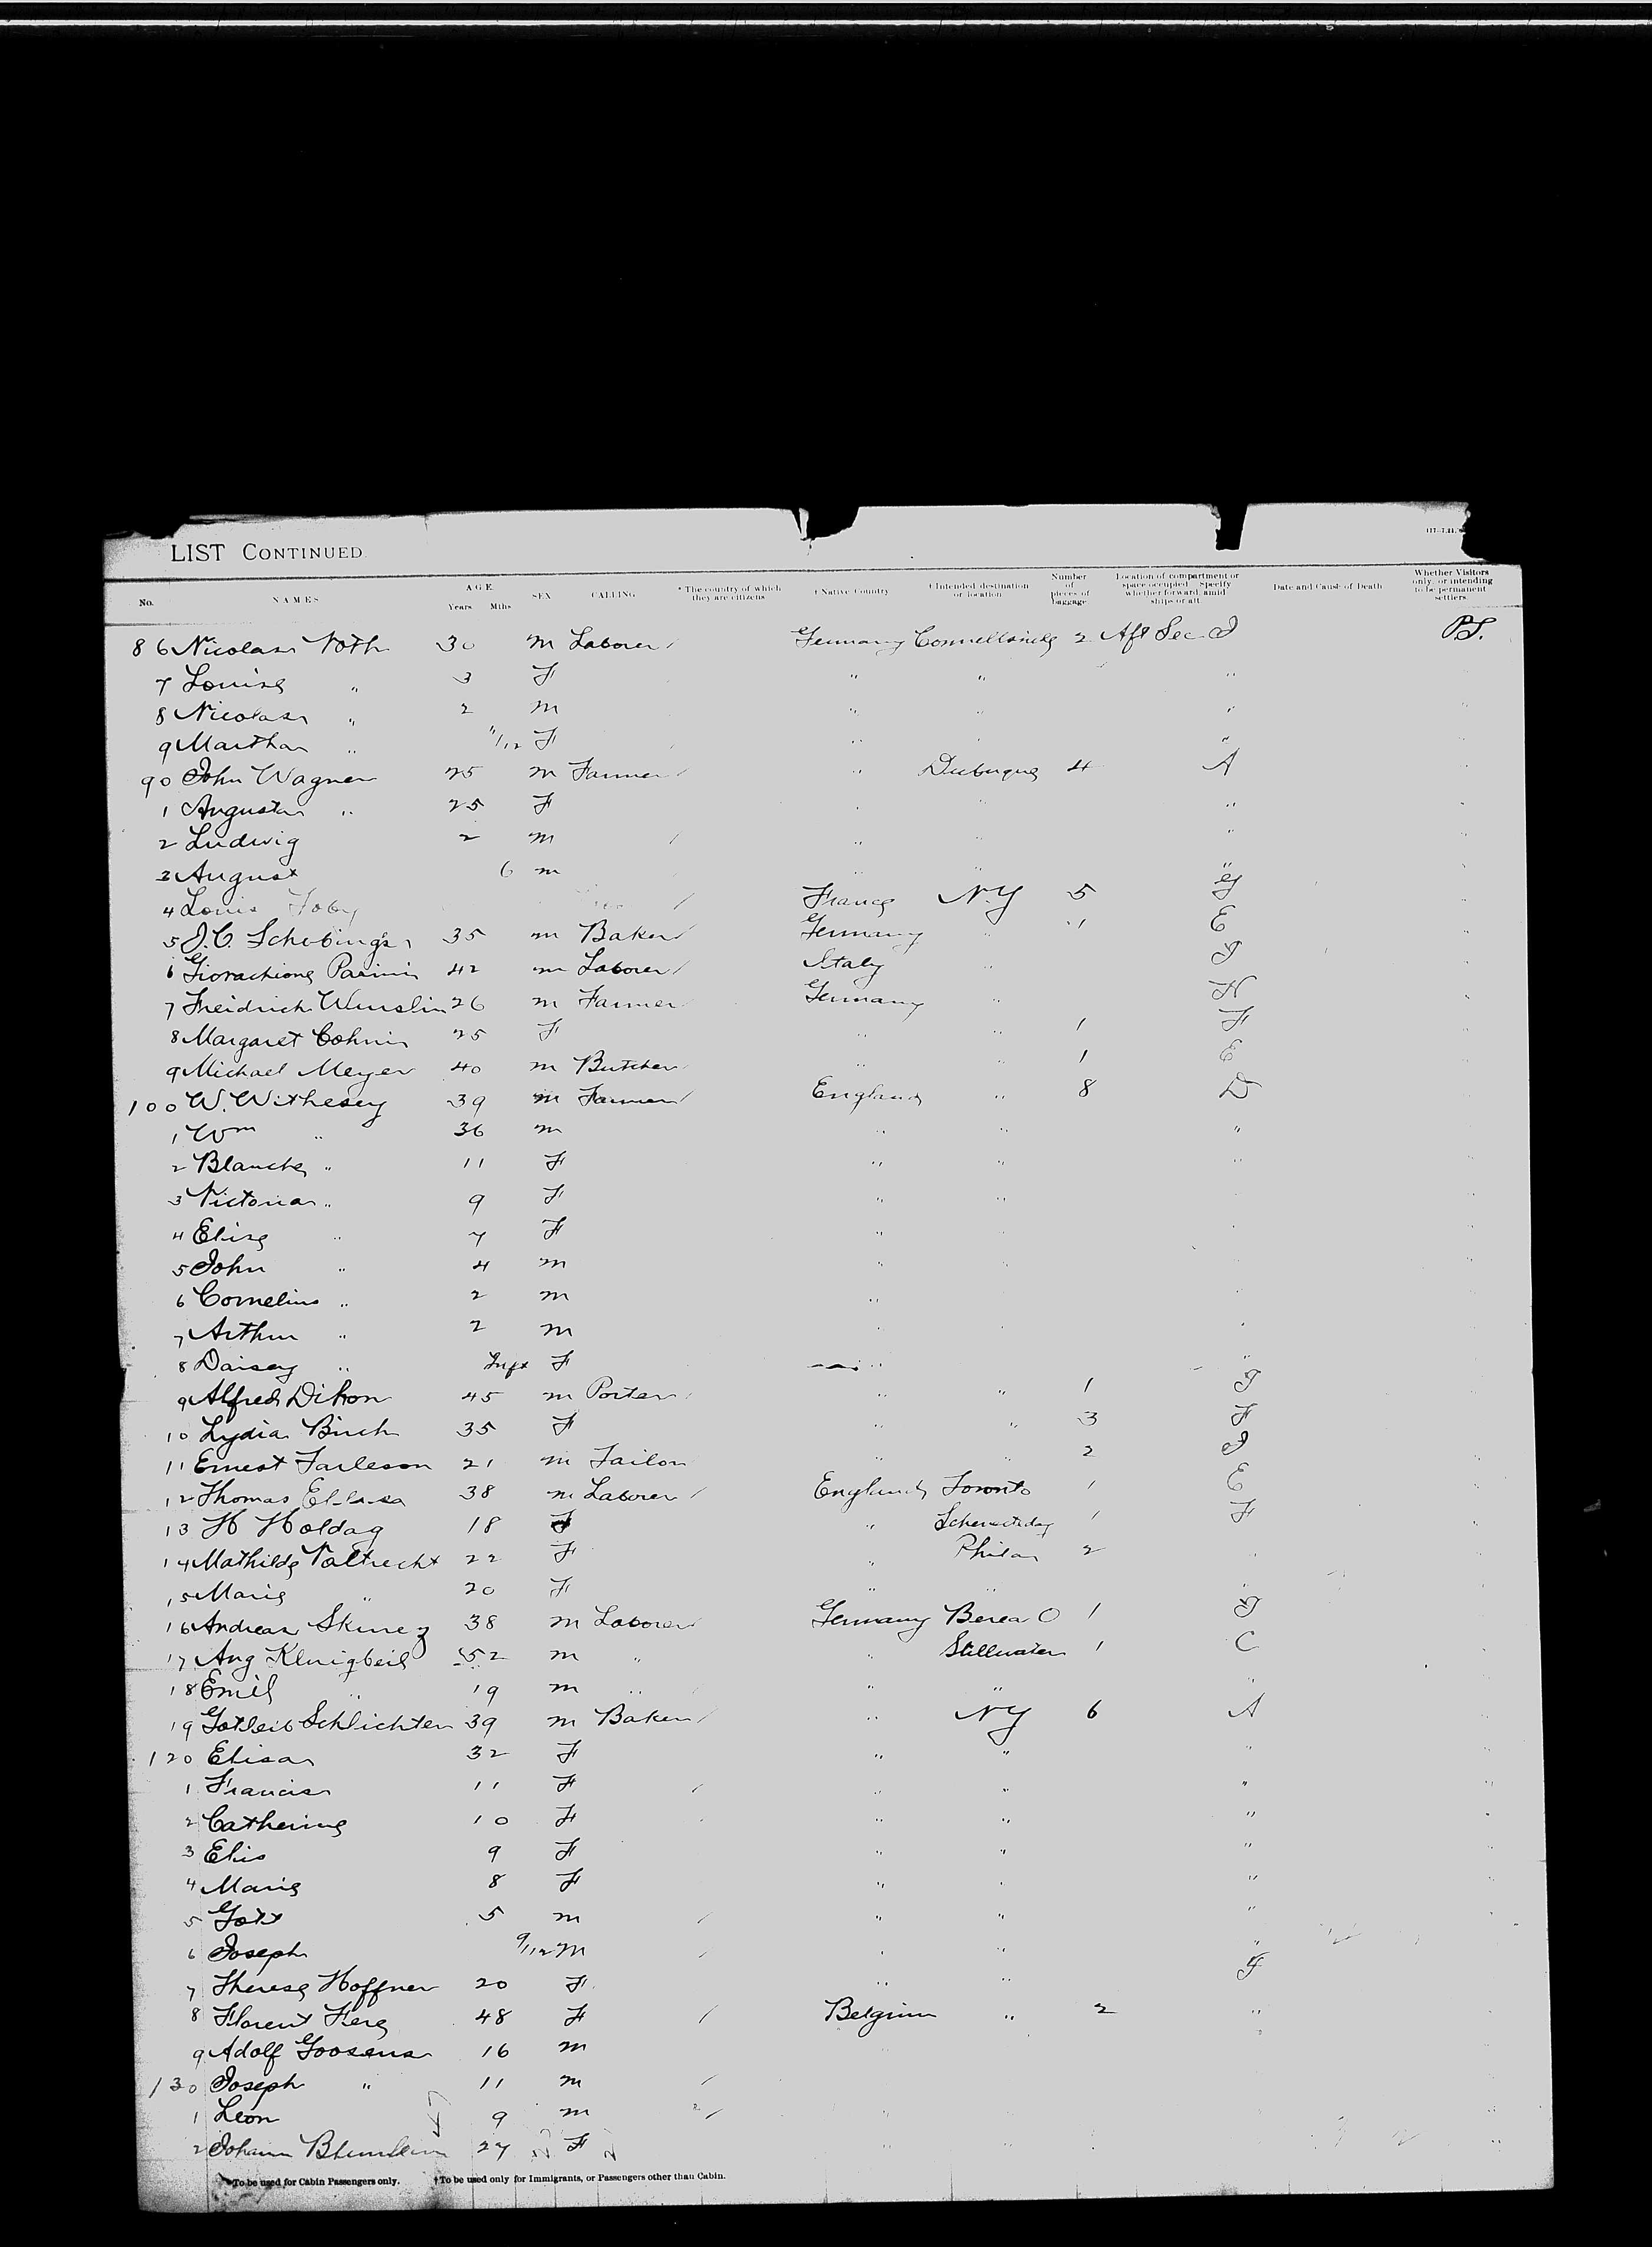 LIST CONTINUED.
No. NAMES AGE Years Mths SEX CALLING * The country of which they are citizens † Native Country † Intended destination or location Number of pieces of baggage Location of compartment or space occupied Specify whether forward, amid ships or aft Date and Cause of Death Whether Visitors only, or intending to be permanent settlers.
86 Nicolaus Noth 30 m Laborer Germany 2 Aft Sec I P.S.
7 Louise " 3 F " " "
8 Nicolaus " 2 m " " "
9 Martha " 11/12 F " " "
90 John Wagner 25 m Farmer " Dubuque 4 A
1 Augusta " 25 F " " "
2 Ludwig 2 m " " "
3 August 6 m " " "
4 Louis Foby France N.Y 5 G
5 J.C. 35 m Baker Germany " 1 E
6 42 m Laborer Italy " I
7 Freidrich 26 m Farmer Germany " H
8 Margaret 25 F " " 1 F
9 Michael Meyer 40 m Butcher " " 1 E
100 W. Withesey 39 m Farmer England " 8 D
1 Wm " 36 m " " "
2 Blanche " 11 F " " "
3 Victoria " 9 F " "
4 Elise " 7 F "
5 John " 4 m "
6 Cornelius " 2 m "
7 Arthur " 2 m "
8 Daisey " Inft F " "
9 Alfred Dikon 45 m Porter " " 1 I
10 Lydia Birch 35 F " " 3 F
11 Ernest Farleson 21 m Tailor " " 2 I
12 Thomas 38 m Laborer England Toronto 1 E
13 H Holdag 18 F " Schenectday 1 F
14 Mathilde Valtrecht 22 F " Phila 2
15 Marie " 20 F " " "
16 Andreas 38 m Laborer Germany Berea O 1 I
17 Aug Klingbeil 52 m " " Stillwater 1 C
18 Emil " 19 m " " " "
19 Gotleib Schlichter 39 m Baker " NY 6 A
120 Elisa 32 F " " "
1 Francisa 11 F " " "
2 Catherine 10 F " " "
3 Elis 9 F " " "
4 Marie 8 F " " "
5 Gott 5 m " " "
6 Joseph 9/12 m " " "
7 Therese Hoffner 20 F " " F
8 Florent 48 F Belgium " 2 "
9 Adolf Goosens 16 m
130 Joseph " 11 m
1 Leon 9 m
2 Johann 27 F
*To be used for Cabin Passengers only. †To be used only for Immigrants, or Passengers other than Cabin.